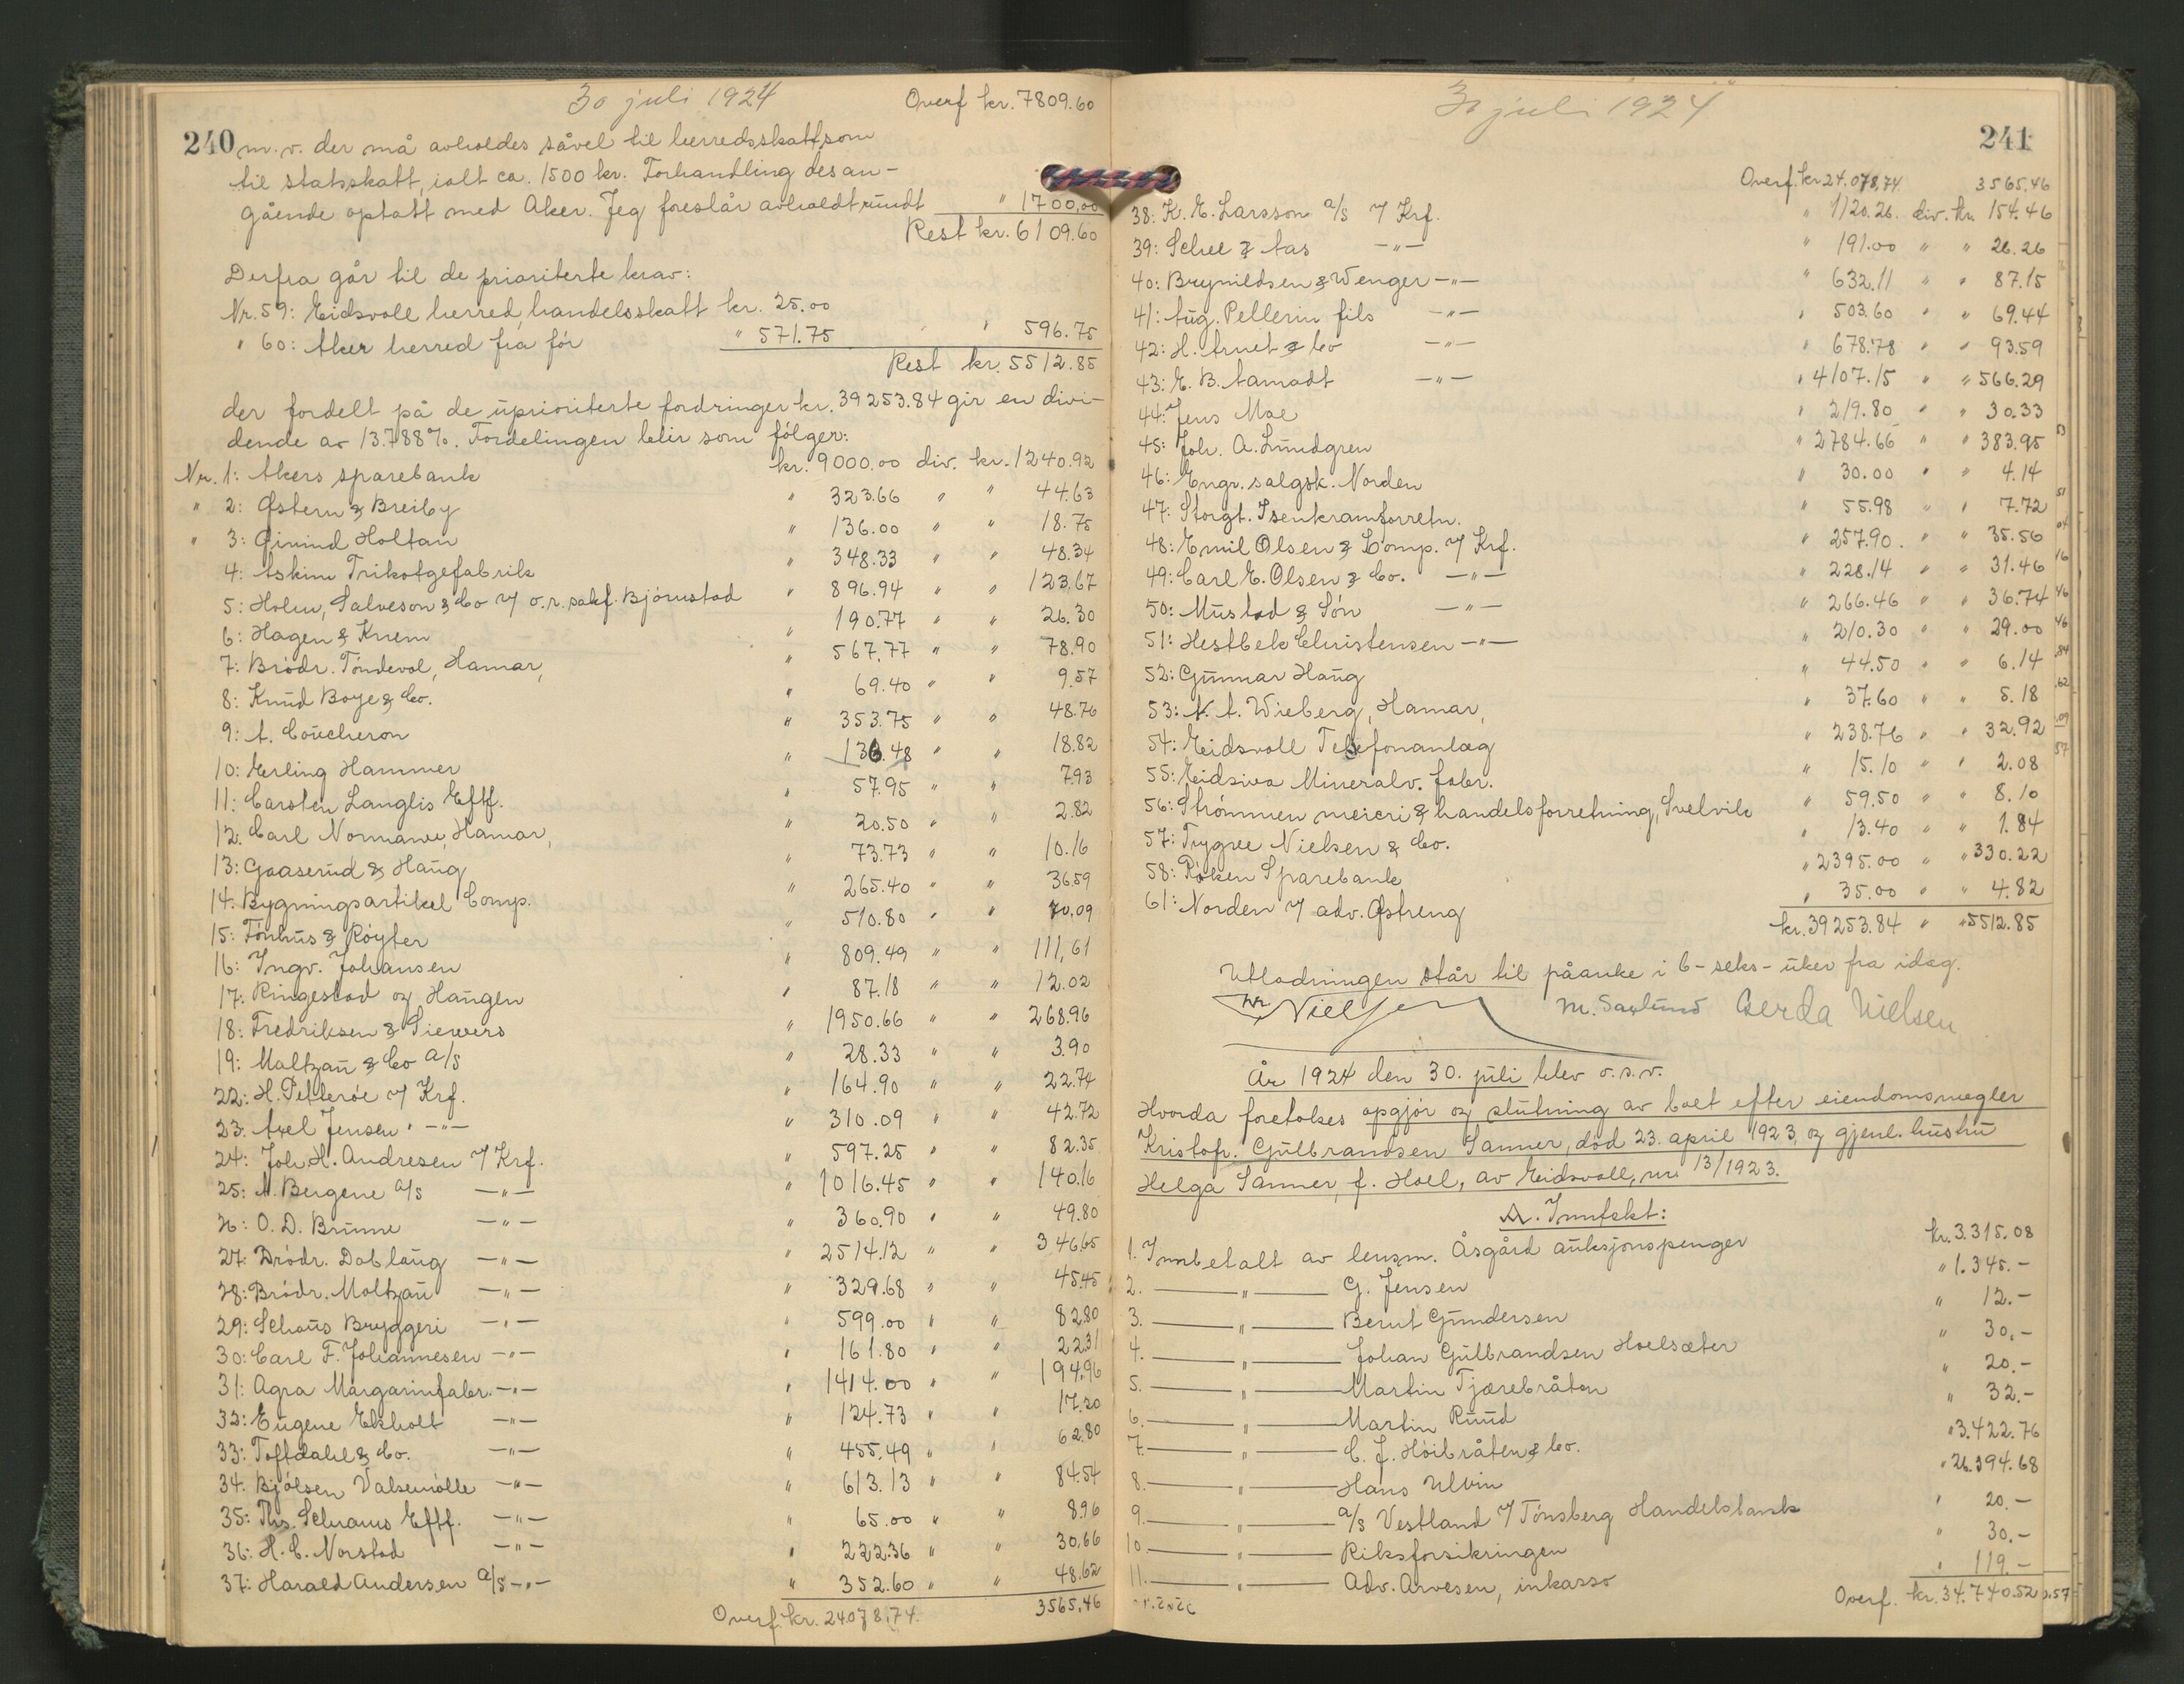 30 juli 1924 Overf kr. 7809.60
240 m. v. der må avholdes såvel til herredsskatt som
til statsskatt, ialt ca. 1500 kr. Forhandling desan-
gående optatt med Aker. Jeg foreslår avholdt rundt " 1700,00
Rest kr. 6109.60
Derfra går til de prioriterte krav:
Nr. 59: Eidsvoll herred, handelsskatt kr. 25.00
" 60: Aker herred fra før " 571.75 " " 596.75
Rest kr. 5512.85
der fordelt på de uprioriterte fordringer kr. 39253.84 gir en divi-
dende av 13.788%. Fordelingen blir som følger:
Nr. 1: Akers sparebank kr. 9000.00 div. kr. 1240.92
" 2: Østern & Breiby " 323.66 " " 44.63
" 3: Øivind Holtan " 136.00 " " 18.75
4: Askim Trikotgefabrik " 348.33 " " 48.34
5: Holm, Salveson & Co v/ o.r. sakf. Bjørnstad " 896.94 " " 123.67
6: Hagen & Krem " 190.77 " " 26.30
7: Brødr. Tøndevol, Hamar, " 567.77 " " 78.90
8: Knud Boye & Co. " 69.40 " " 9.57
9: A. Coucheron " 353.75 " " 48.76
10: Erling Hammer " 136.48 " " 18.82
11: Carsten Langlis Eftf. " 57.95 " " 7.93
12. Carl Normann, Hamar, " 20.50 " " 2.82
13: Gaaserud & Haug " 73.73 " " 10.16
14. Bygningsartikel Comp. " 265.40 " " 36.59
15: Tønhus & Røyter " 510.80 " " 70.09
16: Ingv. Johansen " 809.49 " " 111,61
17: Ringestad og Haugen " 87.18 " " 12.02
18: Fredriksen & Siewers " 1950.66 " " 268.96
19: Maltzau & Co A/S " 28.33 " " 3.90
22: H. Petterøe v/ Krf. " 164.90 " " 22.74
23. Axel Jensen " —"— " 310.09 " " 42.72
24: Joh. H. Andresen v/ Krf. " 597.25 " " 82.35
25: N. Bergene A/S —"— " 1016.45 " " 140.16
26: O. D. Brunne —"— " 360.90 " " 49.80
27: Brødr. Doblaug —"— " 2514.12 " " 346,65
28: Brødr. Maltzau —"— " 329.68 " " 45.45
29: Schous Bryggeri —"— " 599.00 " " 82.80
30: Carl F. Johannesen —"— " 161.80 " " 22.31
31: Agra Margarinfabr. —"— " 1414.00 " " 194.96
32: Eugene Ekholt —"— " 124.73 " " 17.20
33: Toftdahl & Co. —"— " 455.49 " " 62.80
34. Bjølsen Valsemølle —"— " 613.13 " " 84.54
35: Ths. Schrams Eftf. —"— " 65.00 " " 8.96
36: H. C. Norstad —"— " 222.36 " " 30.66
37: Harald Andersen A/S —"— " 352.60 " " 48.62
Overf. kr. 24078,74. 3565,46
30 juli 1924
241
Overf. kr 24.078,74. 3565,46
38: K. E. Larsson A/S v/ Krf. " 1120.26. div. kr. 154.46
39: Schee & Aas —"— " 191.00 " " 26.26
40: Brynildsen & Wenger —"— " 632.11 " " 87.15
41: Aug. Pellerin fils —"— " 503.60 " " 69.44
42: H. Arnet & Co —"— " 678.78 " " 93.59
43: E. B. Aamodt —"— " 4107.15 " " 566.29
44: Jens Moe " 219.80 " " 30.33
45: Joh. A. Lundgren " 2784.66 " " 383.95
46: Engr. salgsk. Norden " 30.00 " " 4.14
47: Storgt. Isenkramforretn. " 55.98 " " 7.72
48: Emil Olsen & Comp. v/ Krf. " 257.90. " " 35.56
49: Carl E. Olsen & Co. —"— " 228.14 " " 31.46
50: Mustad & Søn —"— " 266.46 " " 36.74
51: Hestbek Christensen —"— " 210.30 " " 29.00
52: Gunnar Haug " 44.50 " " 6.14
53: A. A. Wieberg, Hamar, " 37.60 " " 5.18
54: Eidsvoll Telefonanlæg " 238.76 " " 32.92
55: Eidsiva Mineralv. fabr. " 15.10 " " 2.08
56: Strømmen meieri & handelsforretning, Svelvik " 59.50 " " 8.10
57: Trygve Nielsen & Co. " 13.40 " " 1.84
58: Røken Sparebank " 2395.00 " " 330.22
61: Norden v/ adv. Østreng " 35.00 " " 4.82
kr. 39253.84 " " 5512.85
Utlodningen står til påanke i 6 - seks - uker fra idag.
Nielsen M. Saxlund Gerda Nielsen
År 1924 den 30. juli blev o.s.v.
Hvorda foretokes opgjør og slutning av boet efter eiendomsmegler
Kristofr. Gulbrandsen Sanner, død 23. april 1923, og gjenl. hustru
Helga Sanner, f. Hoel, av Eidsvoll, nr. 13/1923.
A. Inntekt:
1. Innbetalt av lensm. Åsgård auksjonspenger kr. 3.315.08
2. —"— G. Jensen " 1.345.-
3. —"— Bernt Gundersen " 12.-
4. —"— Johan Gulbrandsen Hoelsæter " 30.-
5. —"— Martin Tjærebråten " 20.-
6. —"— Martin Ruud " 32.-
7. —"— C. J. Høibråten & Co. " 3.422.76
8. —"— Hans Ulvin " 26.394.68
9. —"— A/S Vestland v/ Tønsberg Handelsbank " 20.-
10. —"— Riksforsikringen " 30.-
11. —"— Adv. Arvesen, inkasso " 119.-
Overf. kr. 34.740.52